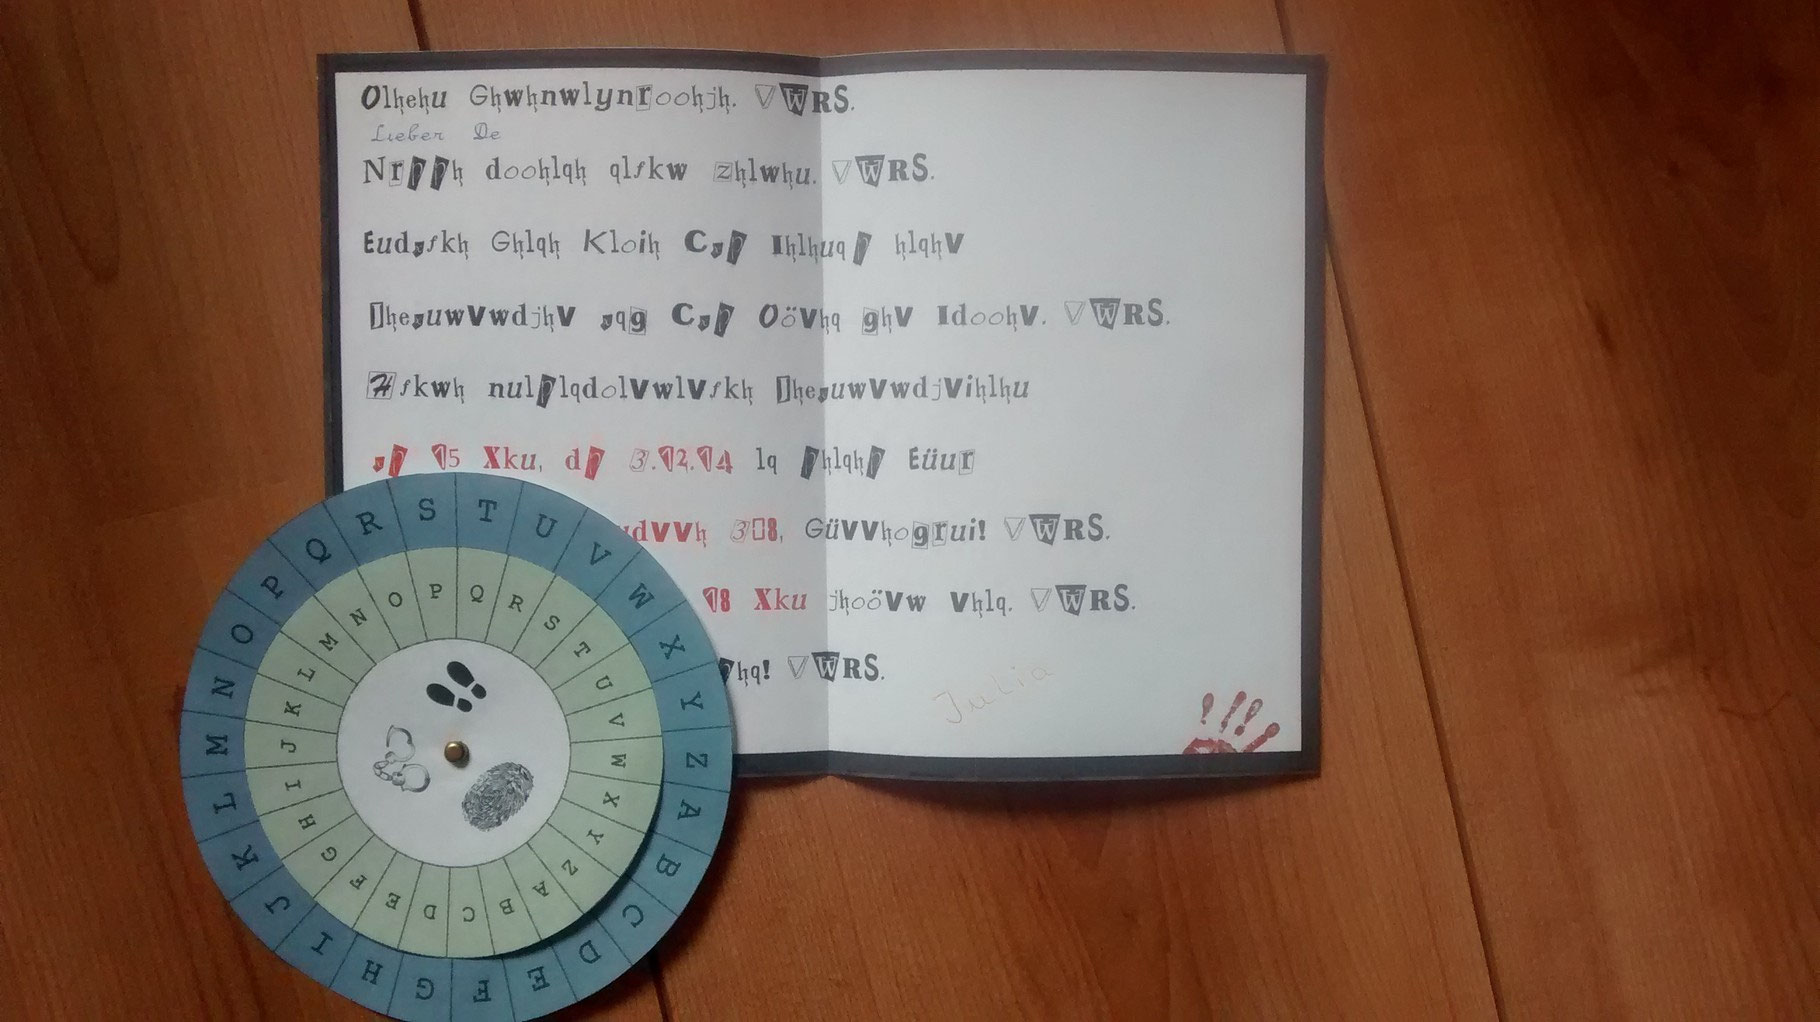 Olhehu Ghwhnwlynroohjh. VWRS.
Lieber De
Nrpph doohlqh qlfkw zhlwhu. VWRS.
Eudxfkh Ghlqh Kloih Cxp Ihlhuqp hlqhV
JhexuwVwdjhV xqg Cxp OöVhq ghV IdoohV. VWRS.
Hfkwh nulplqdolVwlVfkh JhexuwVwdjVihlhu
xp 15 Xku, dp 3.12.14 lq phlqhp Eüur
udVVh 308, GüVVhogrui! VWRS.
18 Xku jhoöVw Vhlq. VWRS.
phq! VWRS.
Julia
A B C D E F G H I J K L M N O P Q R S T U V W X Y Z
A B C D E F G H I J K L M N O P Q R S T U V W X Y Z